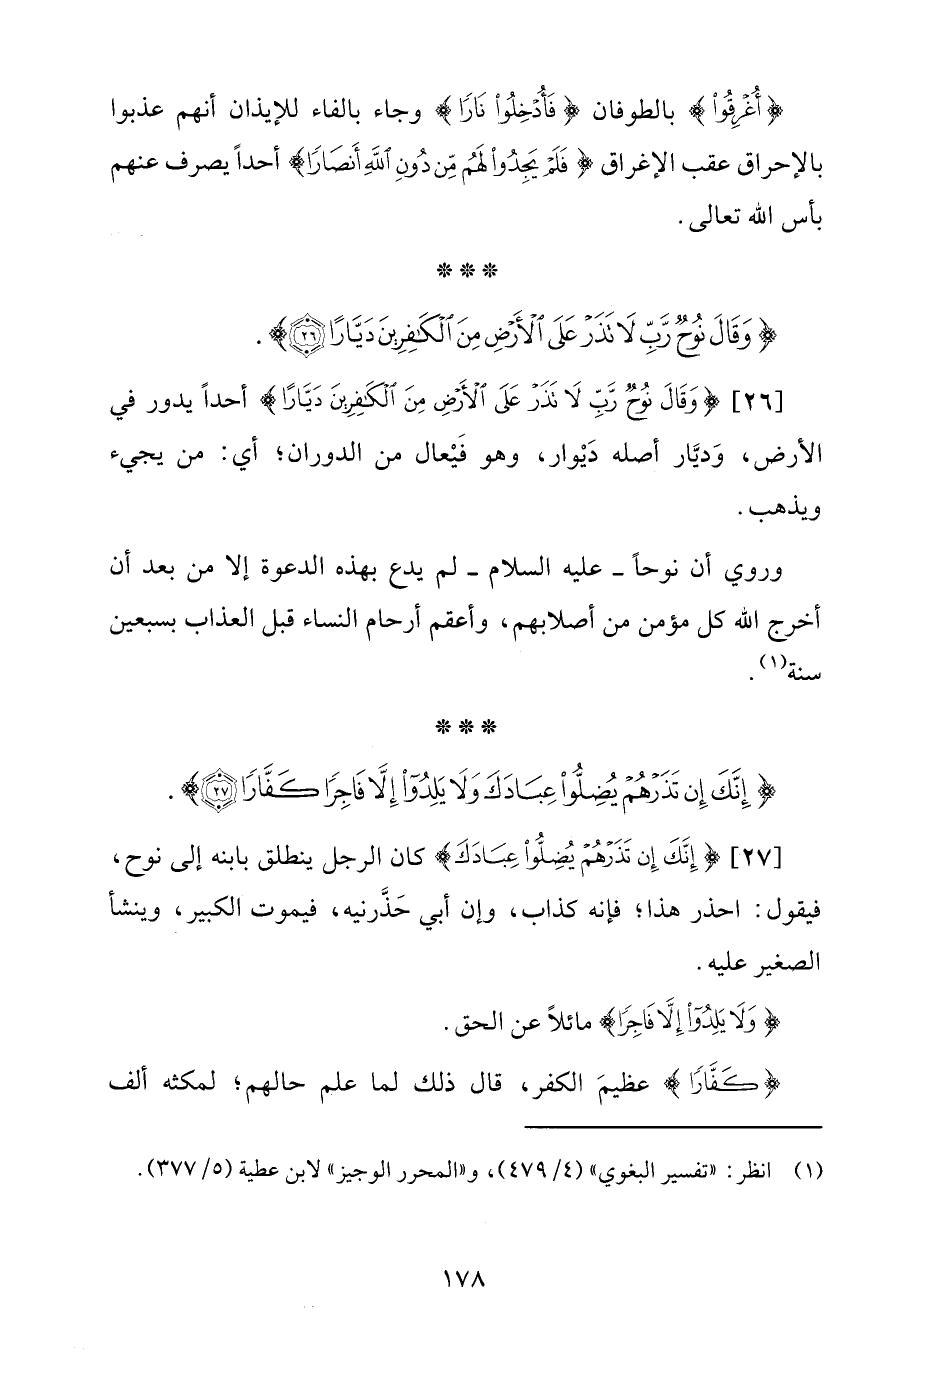 ﴿ أُغْرِقُوا۟ ﴾ بالطوفان ﴿ فَأُدْخِلُوا۟ نَارًا ﴾ وجاء بالفاء للإيذان أنهم عذبوا
بالإحراق عقب الإغراق ﴿ فَلَمْ يَجِدُوا۟ لَهُم مِّن دُونِ ٱللَّهِ أَنصَارًا ﴾ أحداً يصرف عنهم
بأس الله تعالى .
* * *
﴿ وَقَالَ نُوحٌ رَّبِّ لَا تَذَرْ عَلَى ٱلْأَرْضِ مِنَ ٱلْكَٰفِرِينَ دَيَّارًا ٢٦ ﴾ .
[٢٦] ﴿ وَقَالَ نُوحٌ رَّبِّ لَا تَذَرْ عَلَى ٱلْأَرْضِ مِنَ ٱلْكَٰفِرِينَ دَيَّارًا ﴾ أحداً يدور في
الأرض، وَديَّار أصله دَيْوار، وهو فَيْعال من الدوران؛ أي: من يجيء
ويذهب .
وروي أن نوحاً ـ عليه السلام ـ لم يدع بهذه الدعوة إلا من بعد أن
أخرج الله كل مؤمن من أصلابهم، وأعقم أرحام النساء قبل العذاب بسبعين
سنة(١) .
* * *
﴿ إِنَّكَ إِن تَذَرْهُمْ يُضِلُّوا۟ عِبَادَكَ وَلَا يَلِدُوٓا۟ إِلَّا فَاجِرًا كَفَّارًا ٢٧ ﴾ .
[٢٧] ﴿ إِنَّكَ إِن تَذَرْهُمْ يُضِلُّوا۟ عِبَادَكَ ﴾ كان الرجل ينطلق بابنه إلى نوح،
فيقول: احذر هذا؛ فإنه كذاب، وإن أبي حَذَّرنيه، فيموت الكبير، وينشأ
الصغير عليه .
﴿ وَلَا يَلِدُوٓا۟ إِلَّا فَاجِرًا ﴾ مائلاً عن الحق .
﴿ كَفَّارًا ﴾ عظيمَ الكفر، قال ذلك لما علم حالهم؛ لمكثه ألف
(١) انظر: «تفسير البغوي» (٤/ ٤٧٩)، و«المحرر الوجيز» لابن عطية (٥/ ٣٧٧).
١٧٨